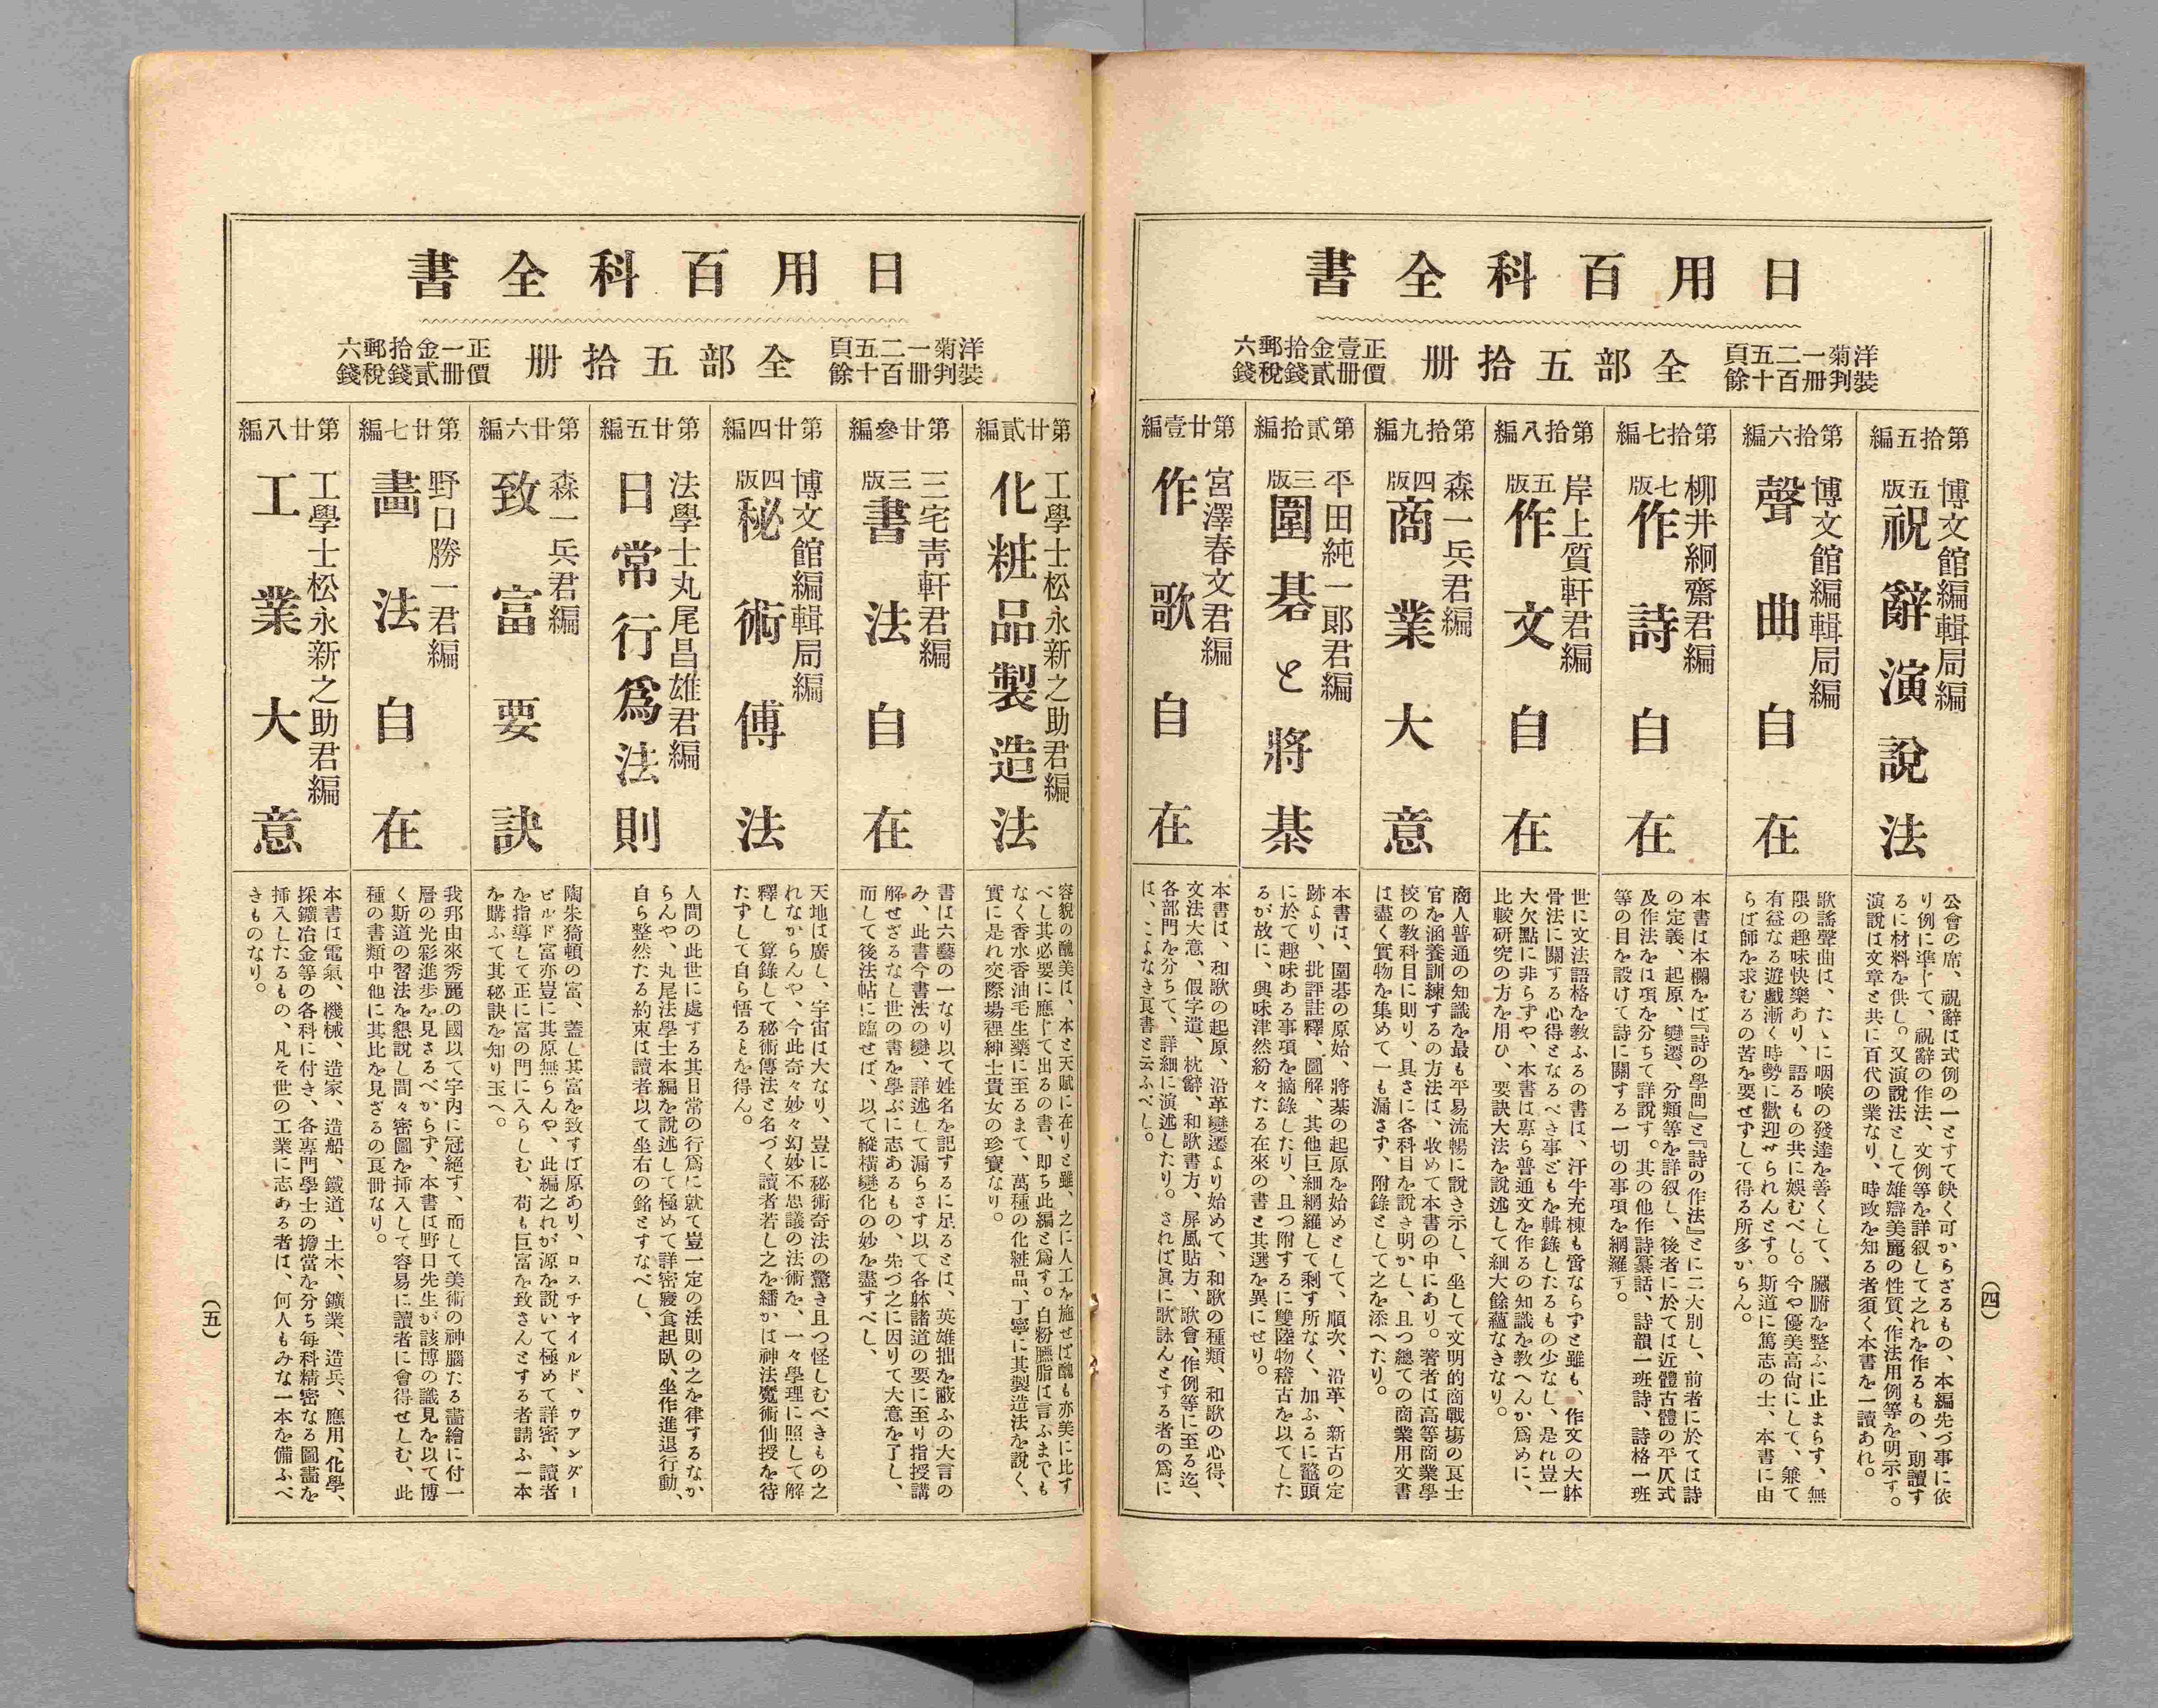 日用百科全書
洋裝
菊判
一冊
二百
五十
頁餘
全部五拾冊
正價
壹冊
金貳
拾錢
郵稅
六錢
第拾五編
博文館編輯局編
五版
祝辭演說法
公會の席、祝辭は式例の一として缺く可からざるもの、本編先づ事に依
り例に準じて、祝辭の作法、文例等を詳叙して之れを作るもの、朗讀す
るに材料を供し。又演說法として雄辯美麗の性質、作法用例等を明示す。
演說は文章と共に百代の業なり、時政を知る者須く本書を一讀あれ。
第拾六編
博文館編輯局編
聲曲自在
歌謠聲曲は、たゝに咽喉の發達を善くして、臟腑を整ふに止まらす、無
限の趣味快樂あり、語るもの共に娛むべし。今や優美高尙にして、兼て
有益なる遊戲漸く時勢に歡迎せられんとす。斯道に篤志の士、本書に由
らば師を求むるの苦を要せずして得る所多からん。
第拾七編
柳井絅齋君編
七版
作詩自在
本書は本欄をば『詩の學問』と『詩の作法』とに二大別し、前者に於ては詩
の定義、起原、變遷、分類等を詳叙し、後者に於ては近體古體の平仄式
及作法をは項を分ちて詳說す。其の他作詩纂話、詩韻一班詩、詩格一班
等の目を設けて詩に關する一切の事項を網羅す。
第拾八編
岸上質軒君編
五版
作文自在
世に文法語格を敎ふるの書は、汗牛充棟も啻ならずと雖も、作文の大躰
骨法に關する心得となるべき事どもを輯錄したるもの少なし、是れ豈一
大欠點に非らずや、本書は專ら普通文を作るの知識を敎へんか爲めに、
比較研究の方を用ひ、要訣大法を說述して細大餘蘊なきなり。
第拾九編
森一兵君編
四版
商業大意
商人普通の知識を最も平易流暢に說き示し、坐して文明的商戰塲の良士
官を涵養訓練するの方法は、收めて本書の中にあり。著者は高等商業學
校の敎科目に則り、具さに各科目を說き明かし、且つ總ての商業用文書
は盡く實物を集めて一も漏さず、附錄として之を添へたり。
第貳拾編
平田純一郎君編
三版
圍碁と將棊
本書は、圍碁の原始、將棊の起原を始めとして、順次、沿革、新古の定
跡より、批評註釋、圖解、其他巨細網羅して剩す所なく、加ふるに鼇頭
に於て趣味ある事項を摘錄したり、且つ附するに雙陸物稽古を以てした
るが故に、興味津然紛々たる在來の書と其選を異にせり。
第廿壹編
宮澤春文君編
作歌自在
本書は、和歌の起原、沿革變遷より始めて、和歌の種類、和歌の心得、
文法大意、假字遣、枕辭、和歌書方、屏風貼方、歌會、作例等に至る迄、
各部門を分ちて、詳細に演述したり。されば眞に歌詠んとする者の爲に
は、こよなき良書と云ふべし。
(四)
日用百科全書
洋裝
菊判
一冊
二百
五十
頁餘
全部五拾冊
正價
一冊
金貳
拾錢
郵稅
六錢
第廿貳編
工學士松永新之助君編
化粧品製造法
容貌の醜美は、本と天賦に在りと雖、之に人工を施せば醜も亦美に比す
べし其必要に應じて出るの書、即ち此編と爲す。白粉臙脂は言ふまでも
なく香水香油毛生藥に至るまて、萬種の化粧品、丁寧に其製造法を說く、
實に是れ交際場裡紳士貴女の珍寶なり。
第廿參編
三宅靑軒君編
三版
書法自在
書は六藝の一なり以て姓名を記するに足るとは、英雄拙を蔽ふの大言の
み、此書今書法の變、詳述して漏らさす以て各躰諸道の要に至り指授講
解せざるなし世の書を學ぶに志あるもの、先づ之に因りて大意を了し、
而して後法帖に臨せば、以て縱橫變化の妙を盡すべし、
第廿四編
博文館編輯局編
四版
秘術傳法
天地は廣し、宇宙は大なり、豈に秘術奇法の驚き且つ怪しむべきもの之
れなからんや、今此奇々妙々幻妙不思議の法術を、一々學理に照して解
釋し、算錄して秘術傳法と名づく讀者若し之を繙かは神法魔術仙授を待
たずして自ら悟るとを得ん。
第廿五編
法學士丸尾昌雄君編
日常行爲法則
人間の此世に處する其日常の行爲に就て豈一定の法則の之を律するなか
らんや、丸尾法學士本編を說述して極めて詳密寢食起臥、坐作進退行動、
自ら整然たる約束は讀者以て坐右の銘とすなべし、
第廿六編
森一兵君編
致富要訣
陶朱猗頓の富、蓋し其富を致すば原あり、ロスチヤイルド、ヴアンダー
ビルド富亦豈に其原無らんや、此編之れが源を說いて極めて詳密、讀者
を指導して正に富の門に入らしむ、苟も巨富を致さんとする者請ふ一本
を購ふて其秘訣を知り玉へ。
第廿七編
野口勝一君編
畵法自在
我邦由來秀麗の國以て宇內に冠絕す、而して美術の神腦たる畵繪に付一
層の光彩進步を見さるべからず、本書は野口先生が該博の識見を以て博
く斯道の習法を懇說し間々密圖を挿入して容易に讀者に會得せしむ、此
種の書類中他に其比を見ざるの良冊なり。
第廿八編
工學士松永新之助君編
工業大意
本書は電氣、機械、造家、造船、鐵道、土木、鑛業、造兵、應用、化學、
採鑛冶金等の各科に付き、各專門學士の擔當を分ち每科精密なる圖畵を
挿入したるもの、凡そ世の工業に志ある者は、何人もみな一本を備ふべ
きものなり。
(五)